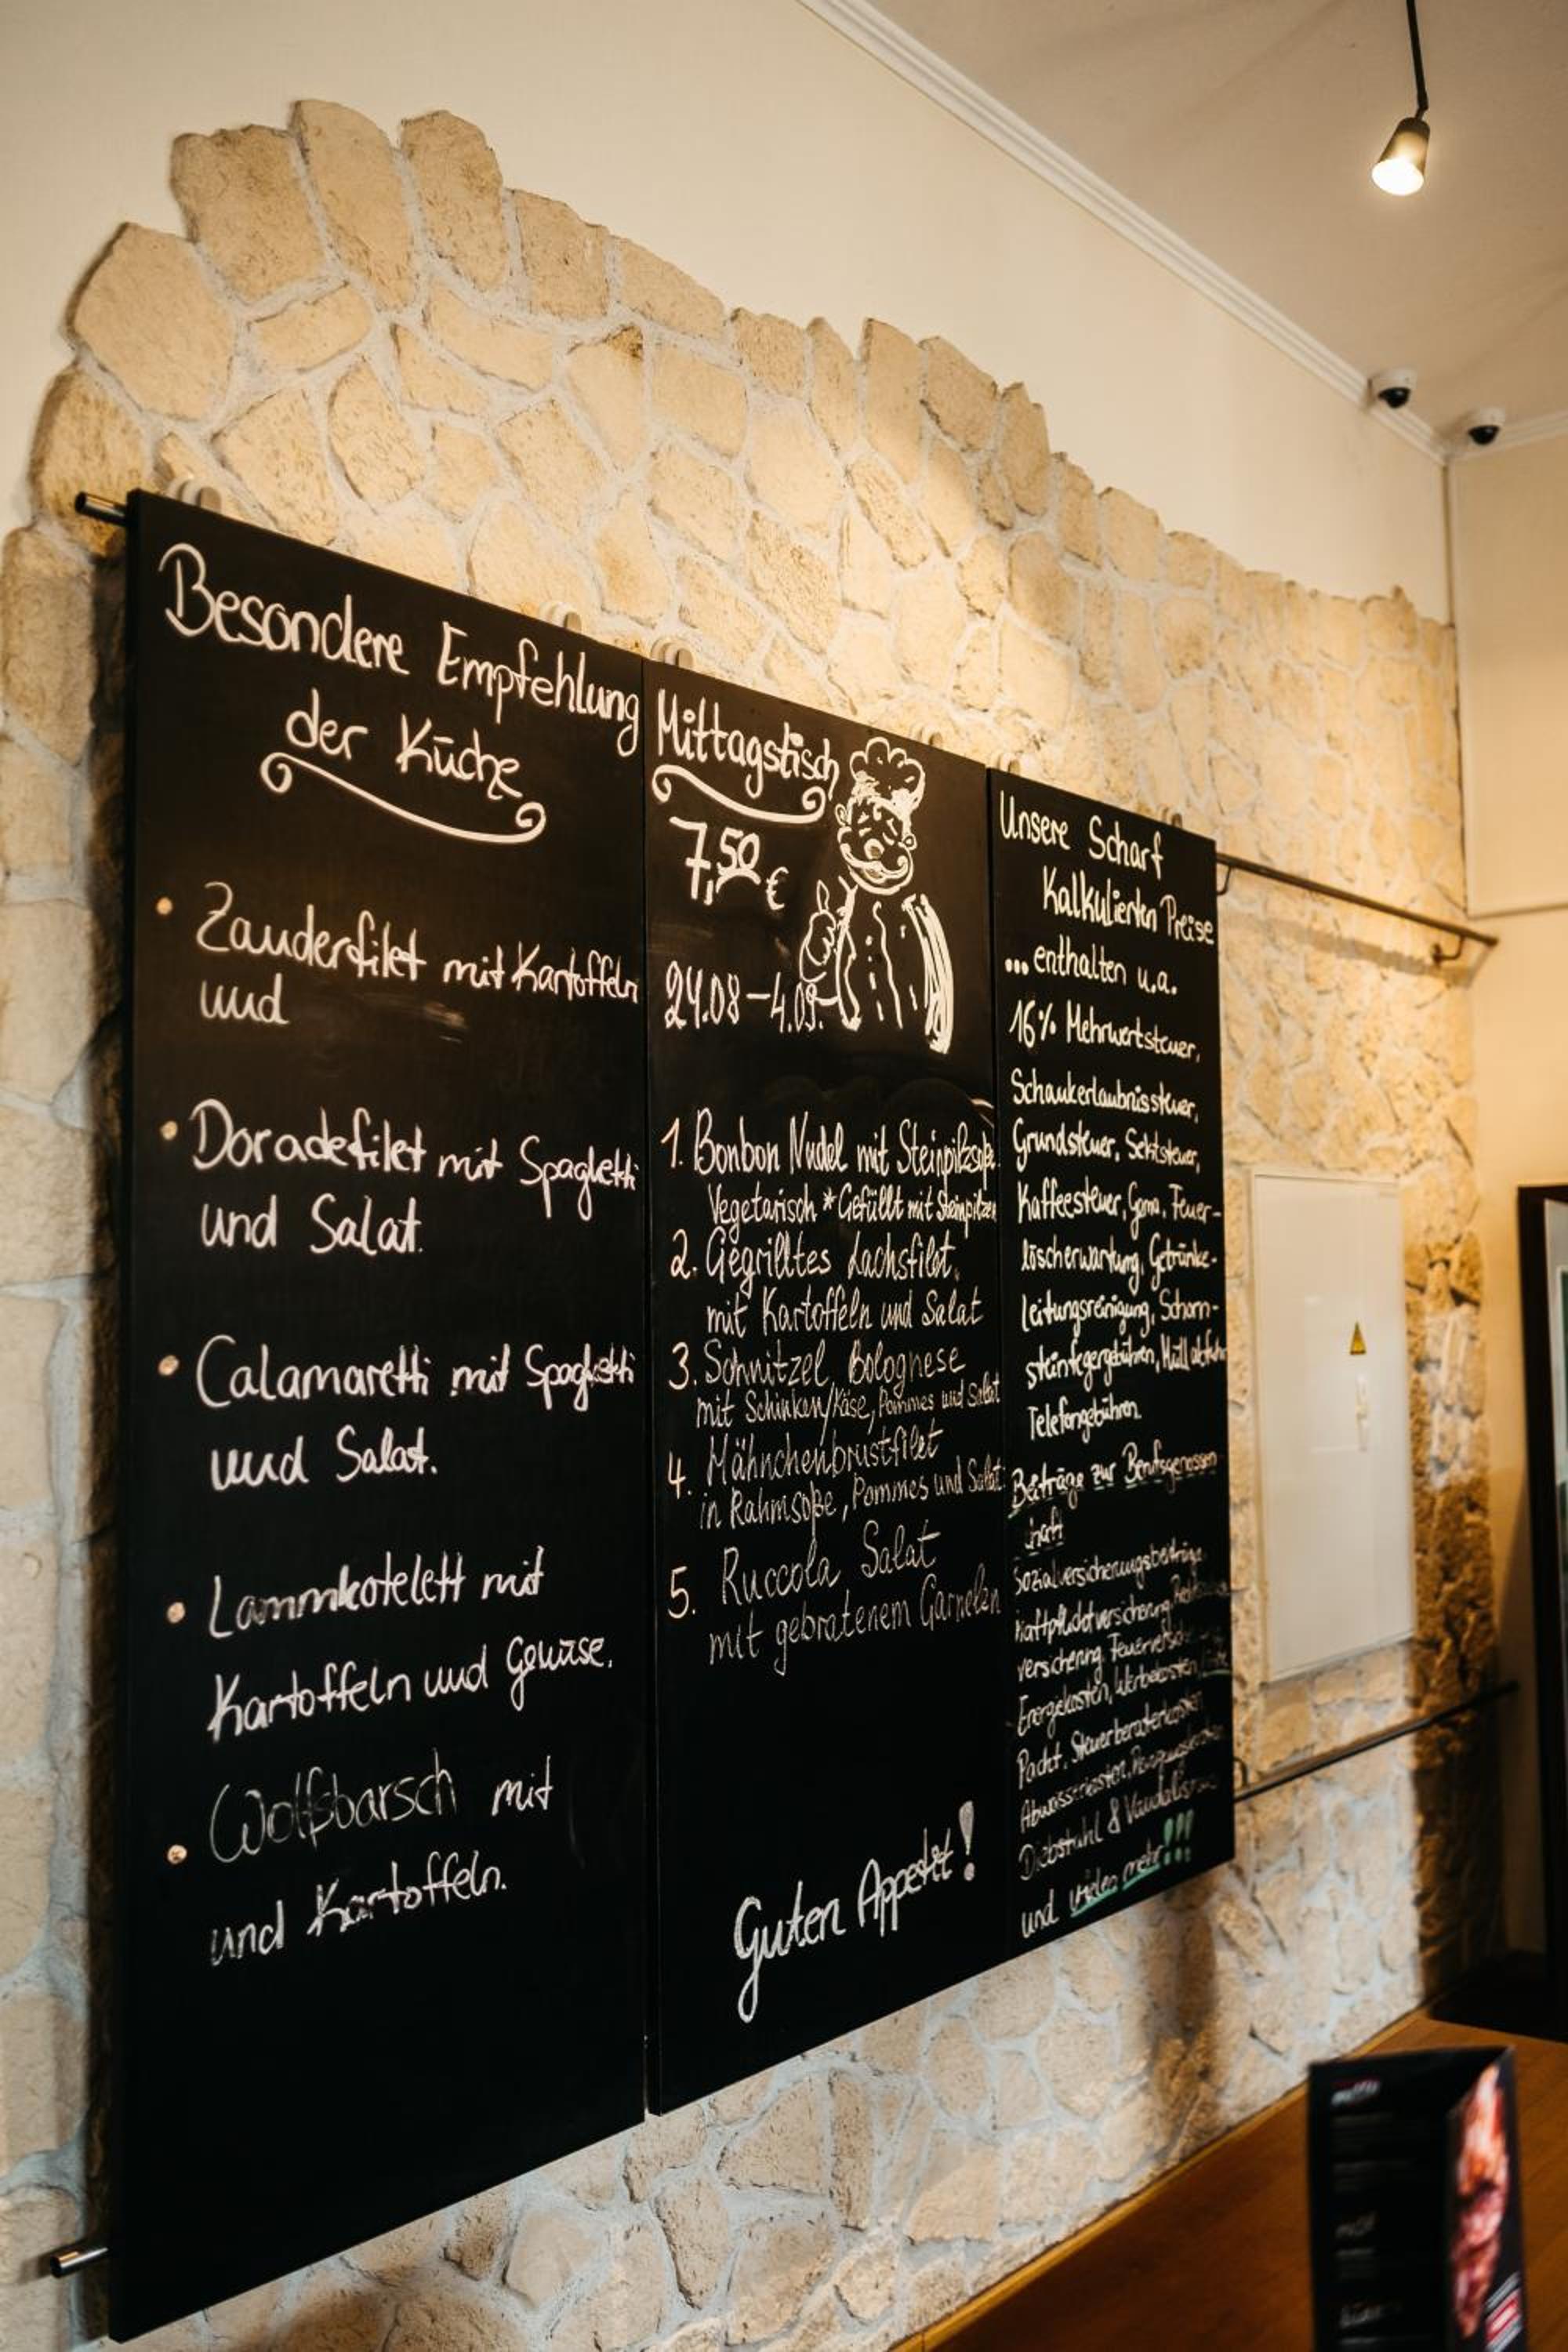 Besondere Empfehlung
der Küche
• Zauderfilet mit Kartoffeln
und
• Doradefilet mit Spaghetti
und Salat.
• Calamaretti mit Spaghetti
und Salat.
• Lammkotelett mit
Kartoffeln und Gemüse.
• Wolfsbarsch mit
und Kartoffeln.
Mittagstisch
7,50 €
24.08-4.09.
1. Bonbon Nudel mit Steinpilzsoße
Vegetarisch * Gefüllt mit Steinpilzen
2. Gegrilltes Lachsfilet,
mit Kartoffeln und Salat
3. Schnitzel Bolognese
mit Schinken/Käse, Pommes und Salat
4. Hähnchenbrustfilet
in Rahmsoße, Pommes und Salat
5. Ruccola Salat
mit gebratenem Garnelen
Guten Appetit!
Unsere Scharf
Kalkulierten Preise
...enthalten u.a.
16% Mehrwertsteuer,
Schankerlaubnissteuer,
Grundsteuer, Sektsteuer,
Kaffeesteuer, Gema, Feuer-
löscherwartung, Getränke-
leitungsreinigung, Schorn-
steinfegergebühren, Müllabfuhr
Telefongebühren.
Beiträge zur Berufsgenossen-
schaft
Sozialversicherungsbeiträge,
Haftpflichtversicherung,
versicherung, Feuerversicherung
Energiekosten, Werbekosten,
Pacht, Steuerberaterkosten
Abwasserkosten,
Diebstahl & Vandalismus
und vieles mehr!!!